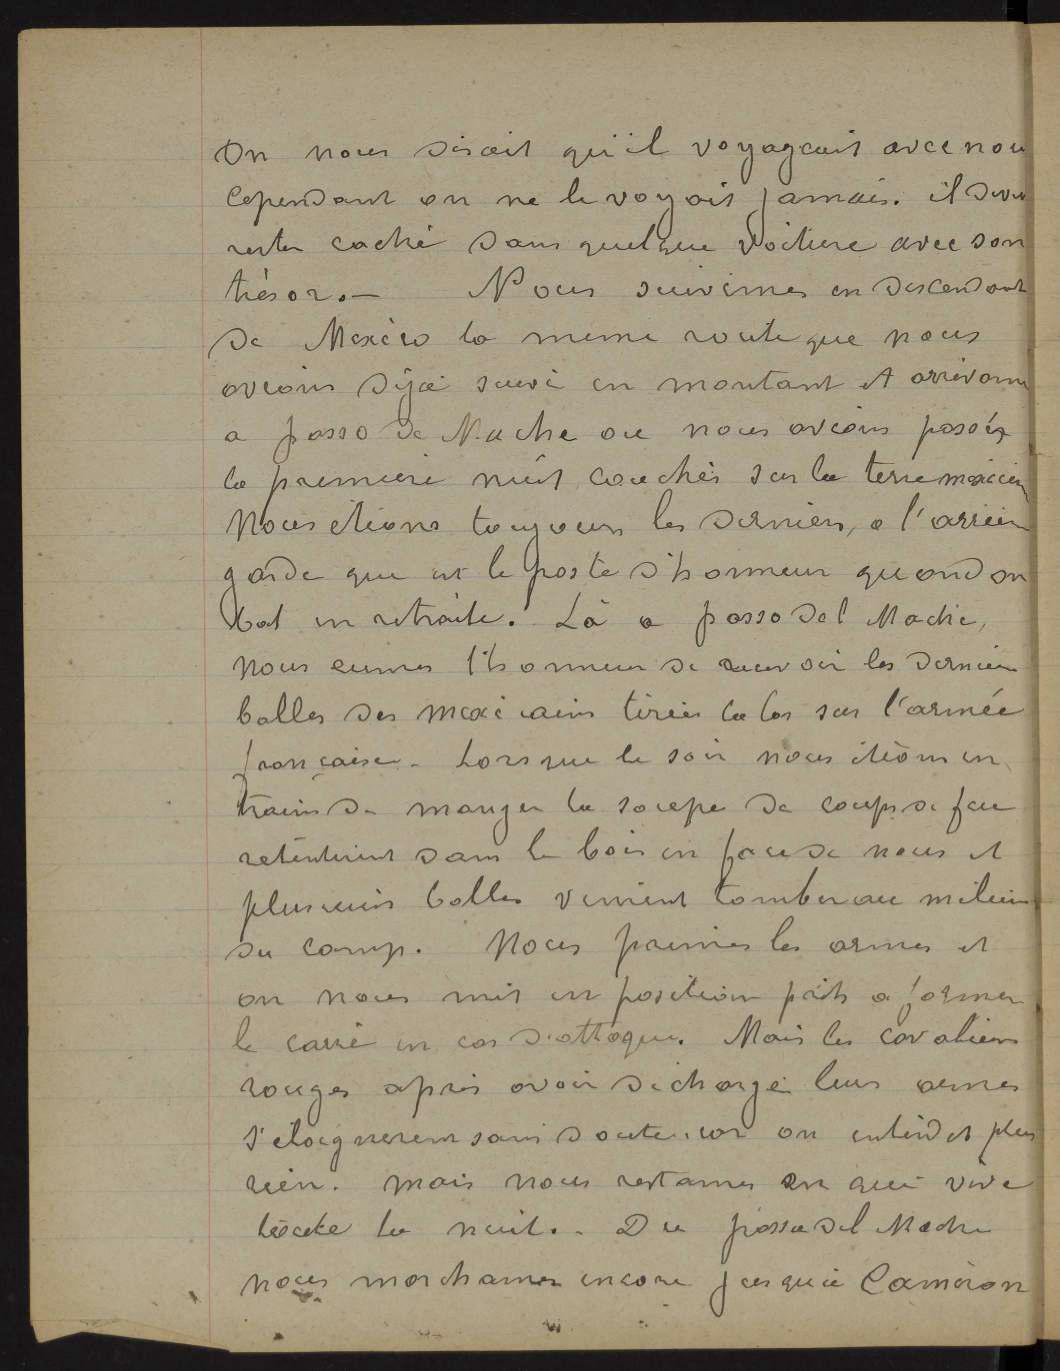 On nous disait qu'il voyageait avec nou
cependant on ne le voyait jamais. il deva
rester caché dans quelque voiture avec son
trésor.— Nous suivimes en descendant
de Mexico la meme route que nous
avions déjà suivi en montant et arrivam
a passo de Mache ou nous avions passés
la premiere nuit couchés sur la terre mexicain
Nous étions toujours les derniers, a l'arrière
garde que est le poste d'honneur quand on
bat en retraite. Là a passo del Mache,
nous eumes l'honneur de recevoir les dernieres
balles des mexicains tirées la bas sur l'armée
française. Lorsque le soir nous étions en
train de manger la soupe de coups de feu
retentirent dans le bois en face de nous et
plusieurs balles vinrent tomber au milieu
du camp. Nous primes les armes et
on nous mit en position prêts a former
le carré en cas d'attaque. Mais les cavaliers
rouges après avoir déchargé leurs armes
s'eloignerent sans doute, car on entendit plus
rien. mais nous restames en qui vive
toute la nuit. - Du passo del Mache
nous marchames encore jusqu'à Cameron